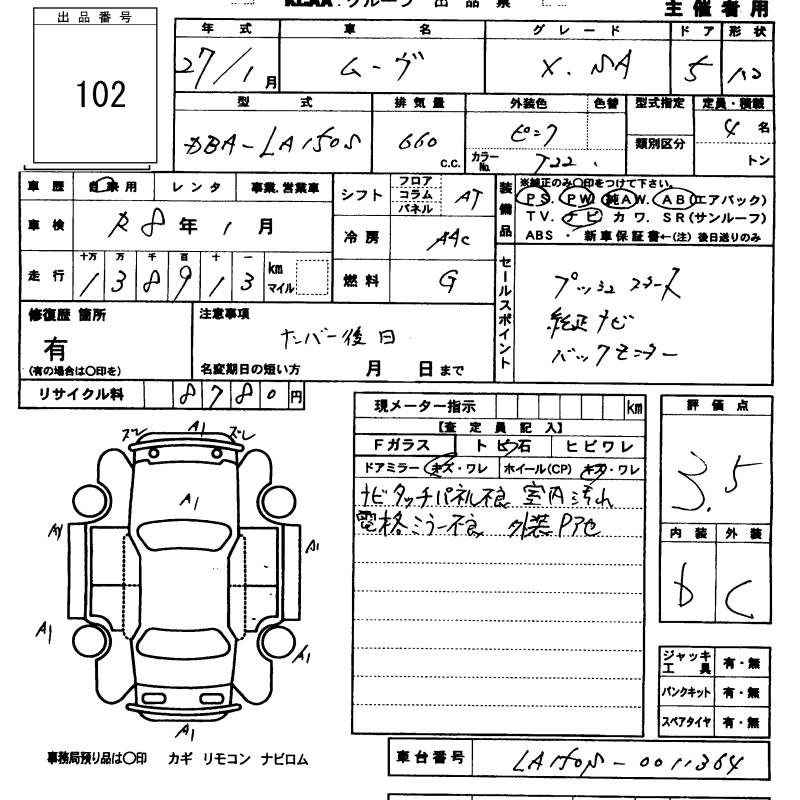 KCAA・グループ 出品票 主催者用
出品番号
102
年式 車名 グレード ドア 形状
27/1月 ムーヴ X.SA 5
型式 排気量 外装色 色替 型式指定 定員・積載
DBA-LA150S 660 c.c. ピンク 4名
カラーNo. T22 類別区分 トン
車歴 自家用 レンタ 事業.営業車
シフト フロア コラム パネル AT
装備品 ※純正のみ〇印をつけて下さい。
PS. PW. 純AW. AB(エアバック)
TV. ナビ カワ. SR(サンルーフ)
ABS ・ 新車保証書←(注)後日送りのみ
車検 R8年1月
冷房 AAC
走行 十万 万 千 百 十 一
138913 km マイル
燃料 G
セールスポイント
プッシュスタート
純正ナビ
バックモニター
修復歴 箇所
有
(有の場合は〇印を)
注意事項
ナンバー後日
名変期日の短い方 月 日まで
リサイクル料 8780円
現メーター指示 km
【査定員記入】
Fガラス トビ石 ヒビワレ
ドアミラー(キズ・ワレ ホイール(CP) キズ・ワレ
ナビタッチパネル不良 室内汚れ
電格ミラー不良 外装Pアセ
評価点
3.5
内装 外装
D C
ズレ A1 ズレ
A1
A1 A1
A1 A1
A1
ジャッキ工具 有・無
パンクキット 有・無
スペアタイヤ 有・無
事務局預り品は〇印 カギ リモコン ナビロム
車台番号 LA150S-0011364